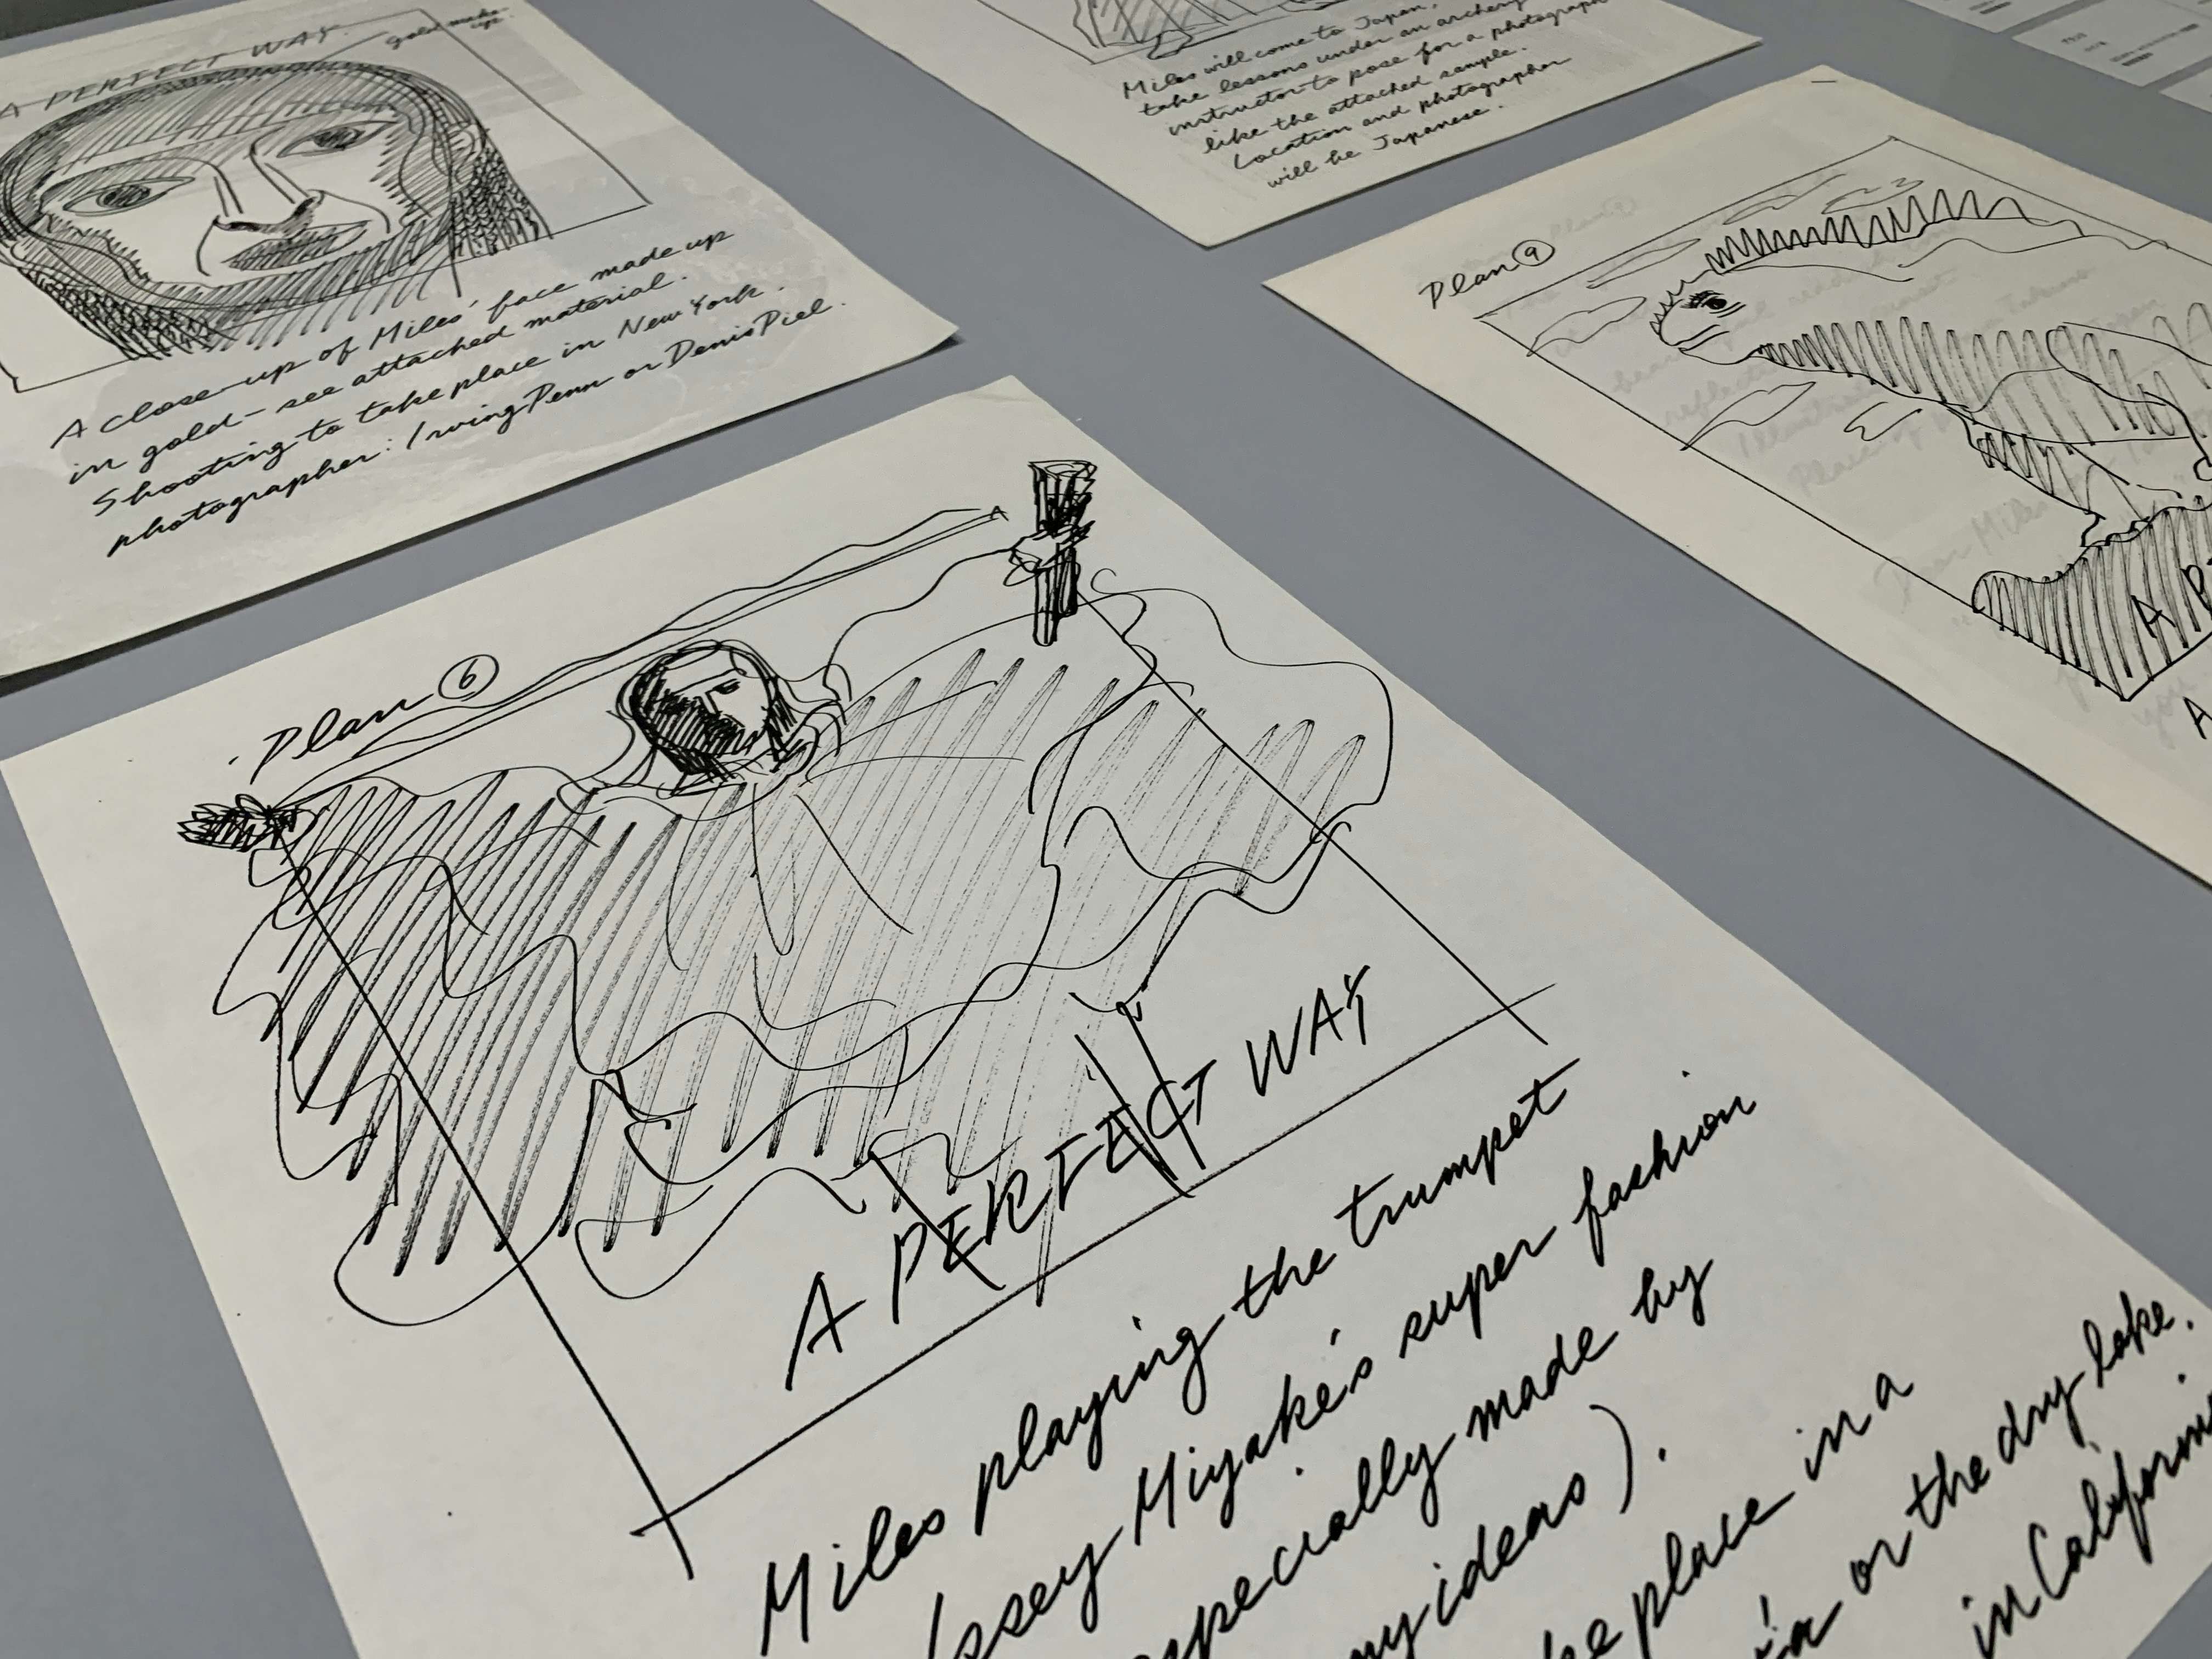 A PERFECT WAY.
gold make-up.
A close-up of Miles' face made up
in gold - see attached material.
Shooting to take place in New York.
photographer: Irving Penn or Denis Piel.
Miles will come to Japan,
take lessons under an archery
instructor to pose for a photograph
like the attached sample.
Location and photographer
will be Japanese.
Plan ⑨
A
A
Plan ⑥
A PERFECT WAY
Miles playing the trumpet
Issey Miyake's super fashion
especially made by
my ideas).
place in a
or the dry lake.
in California